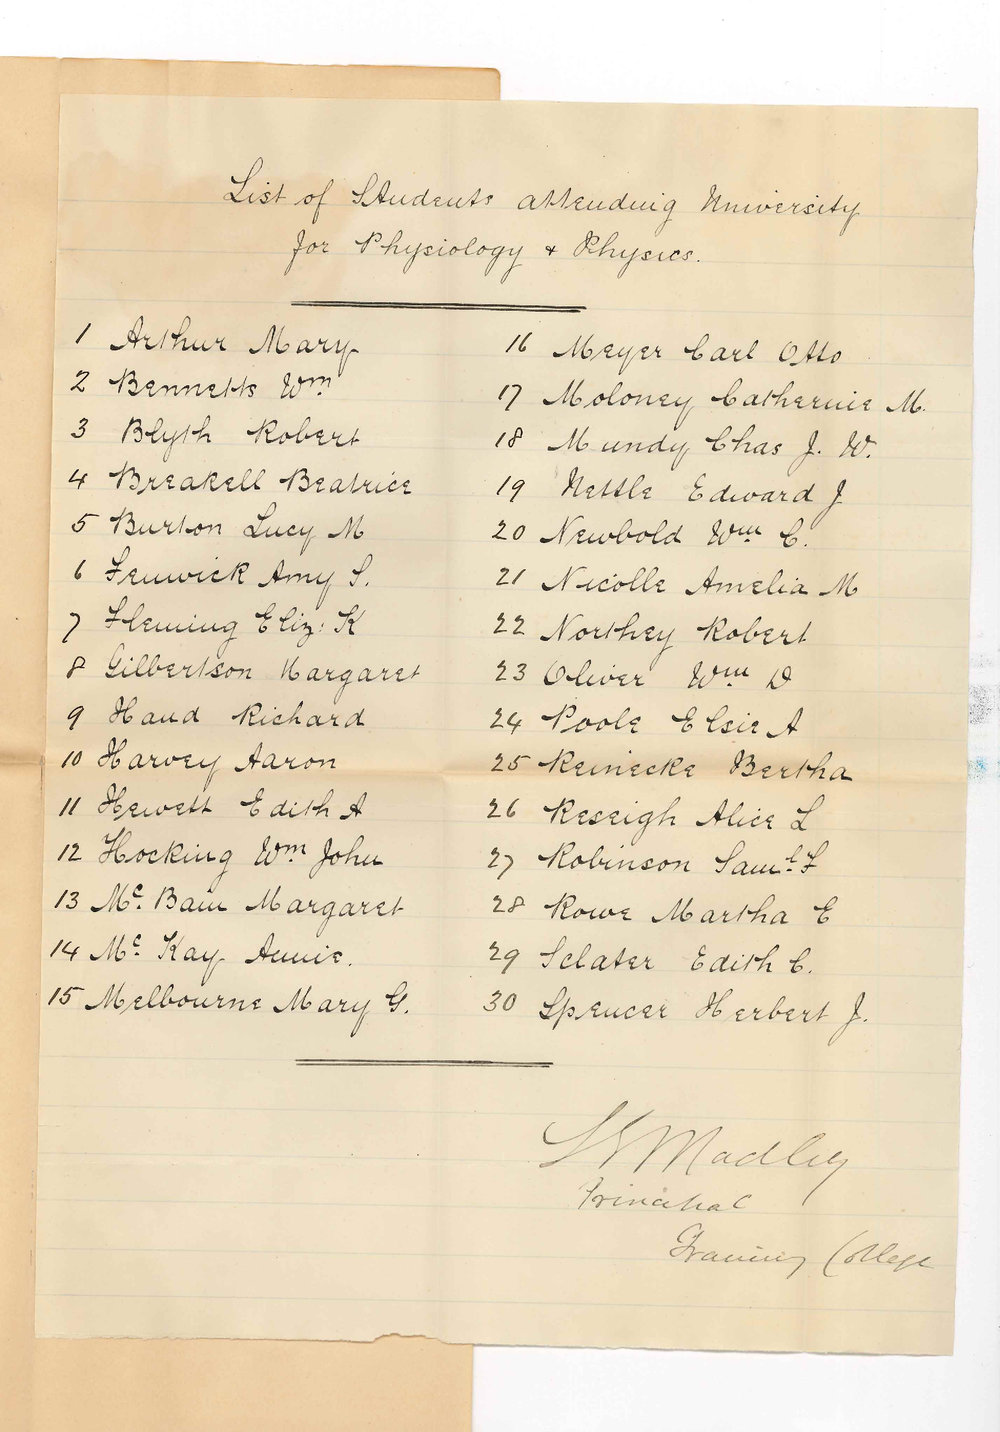 List of Students attending University
for Physiology & Physics.
1 Arthur Mary
2 Bennetts Wm
3 Blyth Robert
4 Breakell Beatrice
5 Burton Lucy M
6 Fenwick Amy S.
7 Fleming Eliz: K
8 Gilbertson Margaret
9 Hand Richard
10 Harvey Aaron
11 Hewett Edith A
12 Hocking Wm John
13 Mc. Bain Margaret
14 Mc. Kay Annie.
15 Melbourne Mary G.
16 Meyer Carl Otto
17 Moloney Catherine M.
18 Mundy Chas J. W.
19 Nettle Edward J
20 Newbold Wm C.
21 Nicolle Amelia M
22 Northey Robert
23 Oliver Wm D
24 Poole Elsie A
25 Reinecke Bertha
26 Reseigh Alice L
27 Robinson Saml. F
28 Rowe Martha E
29 Sclater Edith C.
30 Spencer Herbert J.
Madley
Principal
Training College